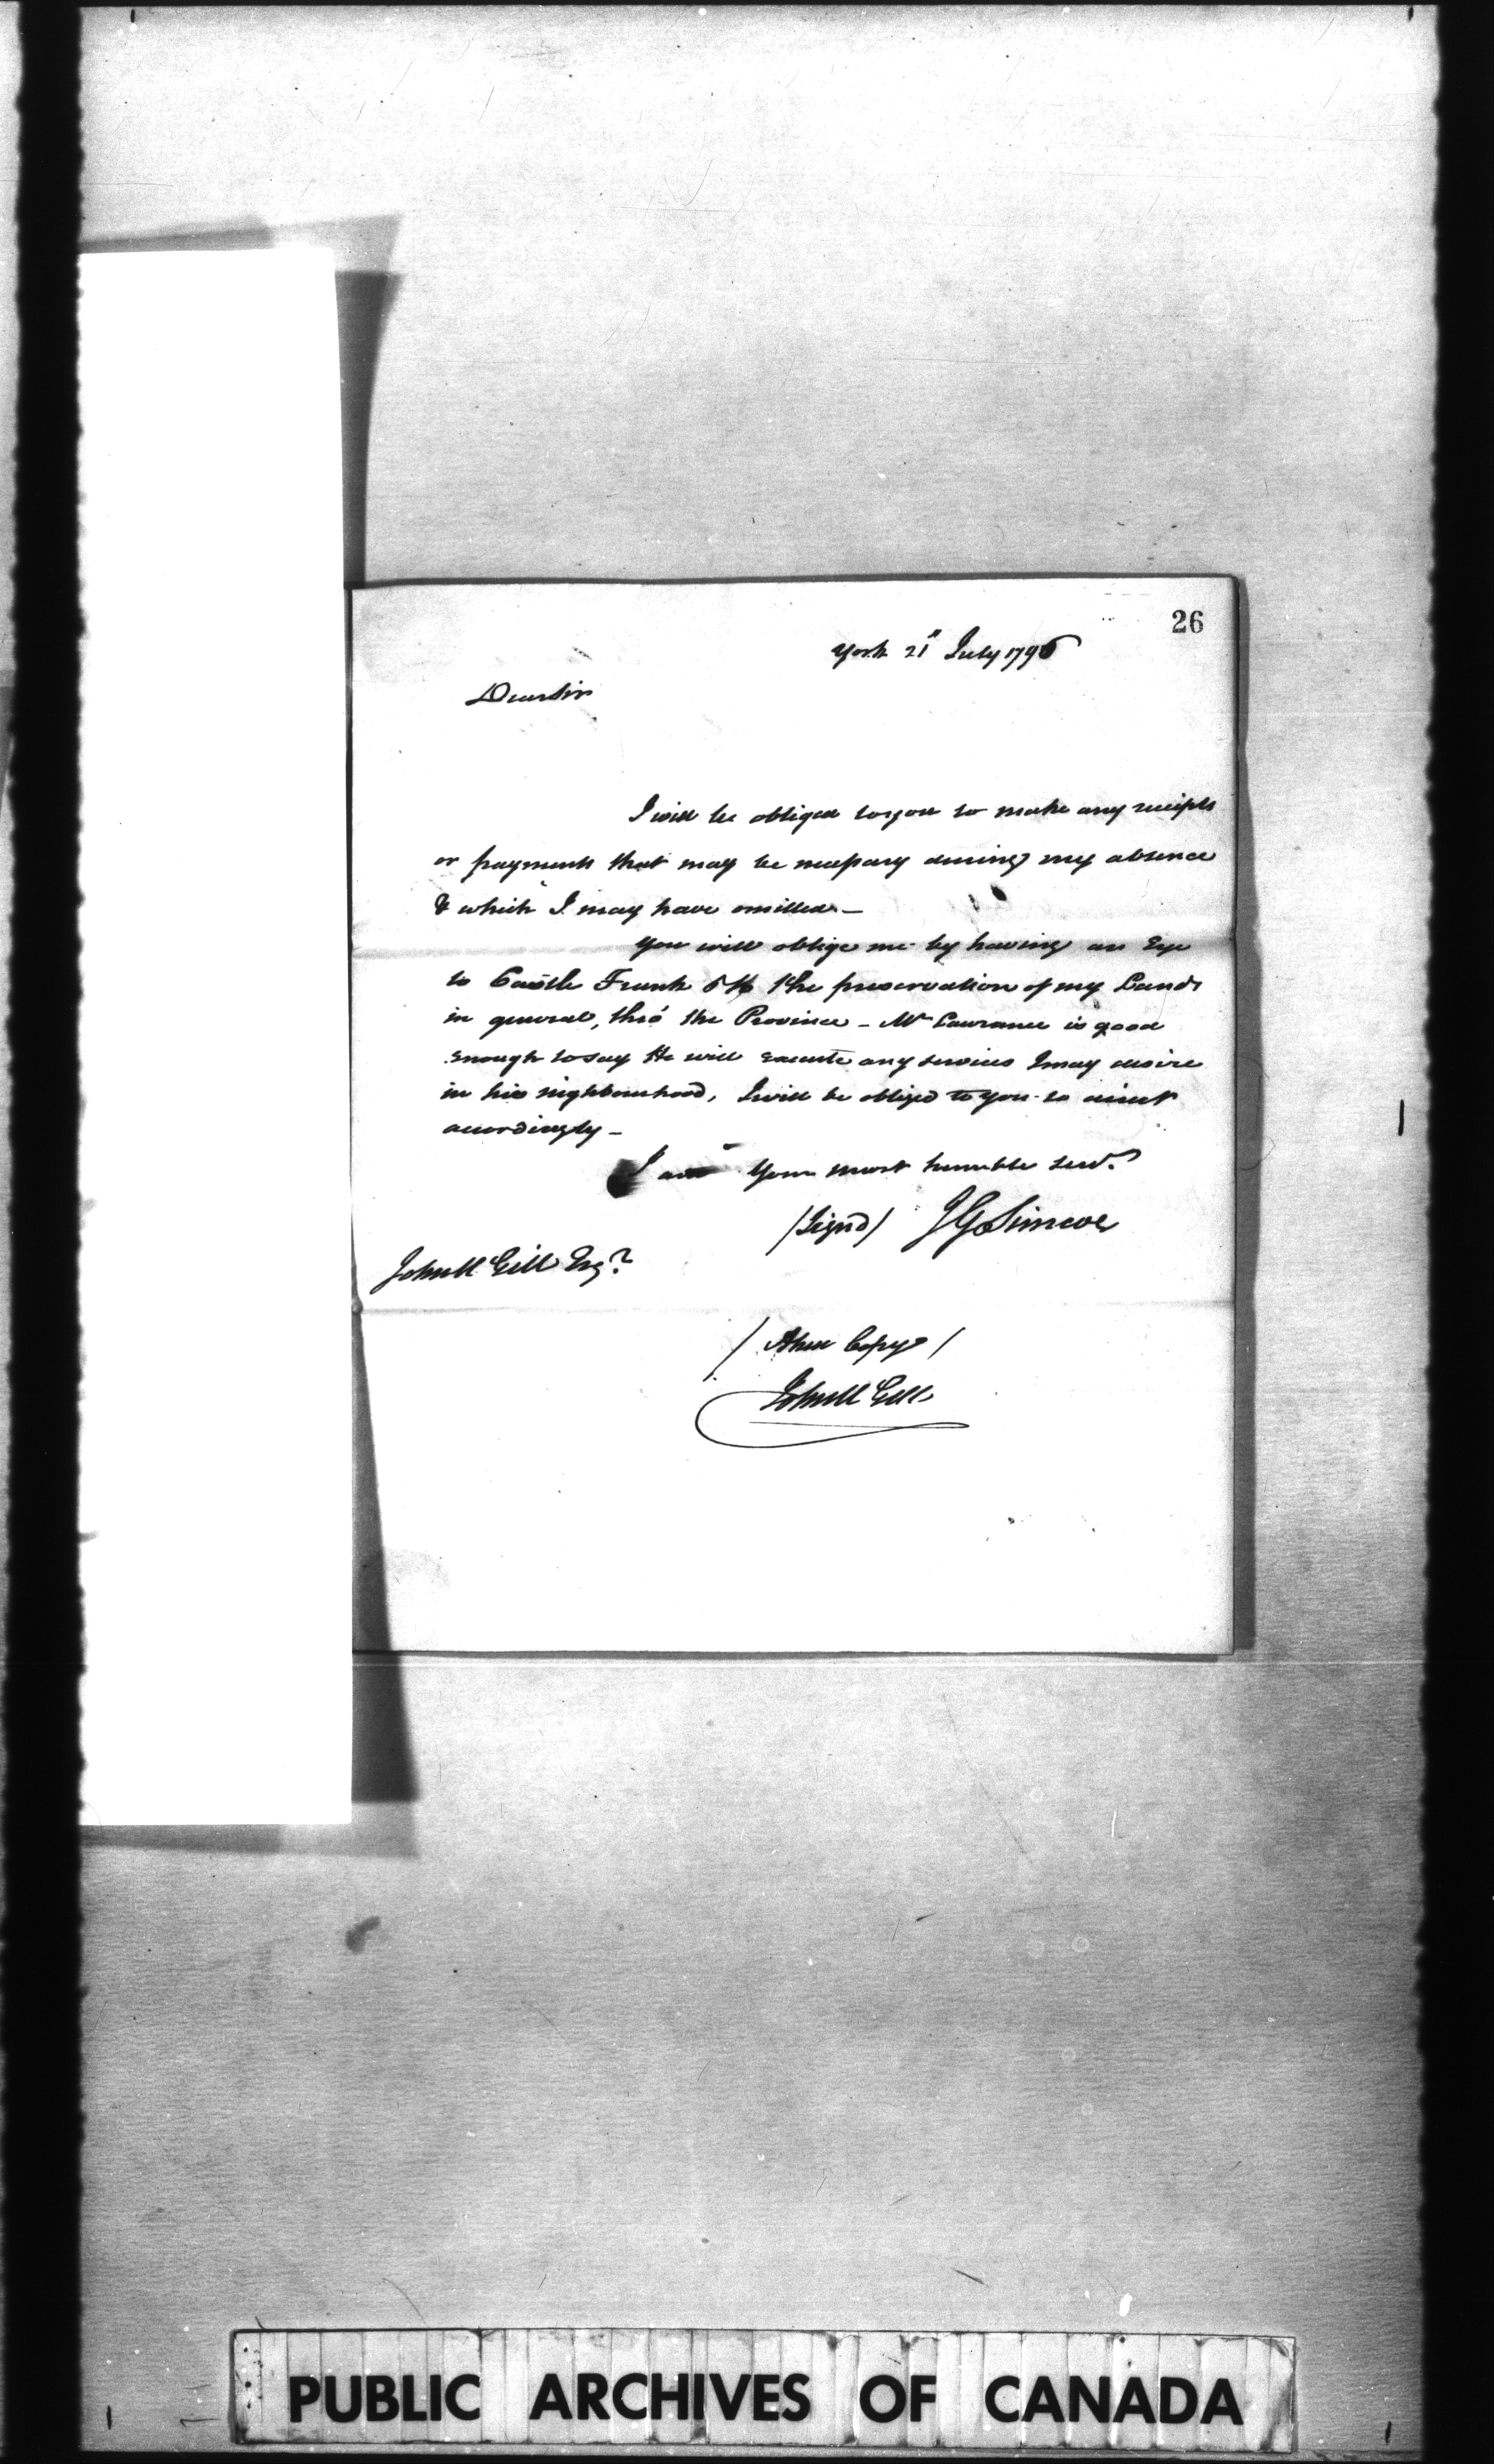 26
York 21st July 1796
Dear Sir
I will be obliged to you to make any receipts
or payments that may be necessary during my absence
& which I may have omitted –
You will oblige me by having an Eye
to Castle Frank & to the preservation of my Lands
in general, thro' the Province – Mr Lawrance is good
enough to say He will execute any services I may desire
in his nighbourhood, I will be obliged to you to
accordingly –
I am Your most humble Servt.
/Signd/ JG Simcoe
John McGill Esqr
/ A true Copy /
John McGill
PUBLIC ARCHIVES OF CANADA